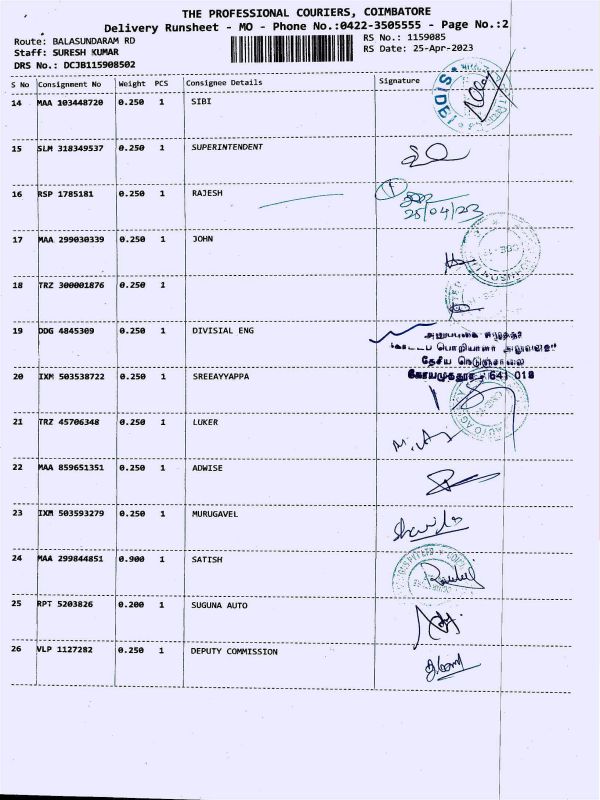 THE PROFESSIONAL COURIERS, COIMBATORE
Delivery Runsheet - MO - Phone No.:0422-3505555 - Page No.:2
Route: BALASUNDARAM RD RS No.: 1159085
Staff: SURESH KUMAR RS Date: 25-Apr-2023
DRS No.: DCJB115908502
S No Consignment No Weight PCS Consignee Details Signature
14 MAA 103448720 0.250 1 SIBI
SIDBI
15 SLM 318349537 0.250 1 SUPERINTENDENT
16 RSP 1785181 0.250 1 RAJESH
25/04/23
17 MAA 299030339 0.250 1 JOHN
18 TRZ 300001876 0.250 1
19 DDG 4845309 0.250 1 DIVISIAL ENG
தேசிய நெடுஞ்சாலை
கோயமுத்தூர் - 641 018
20 IXM 503538722 0.250 1 SREEAYYAPPA
21 TRZ 45706348 0.250 1 LUKER
22 MAA 859651351 0.250 1 ADWISE
23 IXM 503593279 0.250 1 MURUGAVEL
24 MAA 299844851 0.900 1 SATISH
25 RPT 5203826 0.200 1 SUGUNA AUTO
26 VLP 1127282 0.250 1 DEPUTY COMMISSION